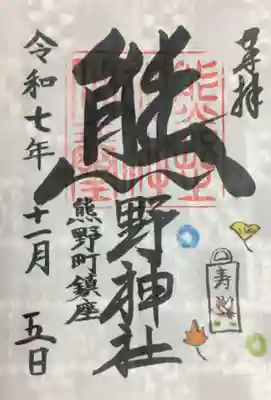 奉拝
熊野神社
熊野町鎮座
令和七年十一月五日
寿